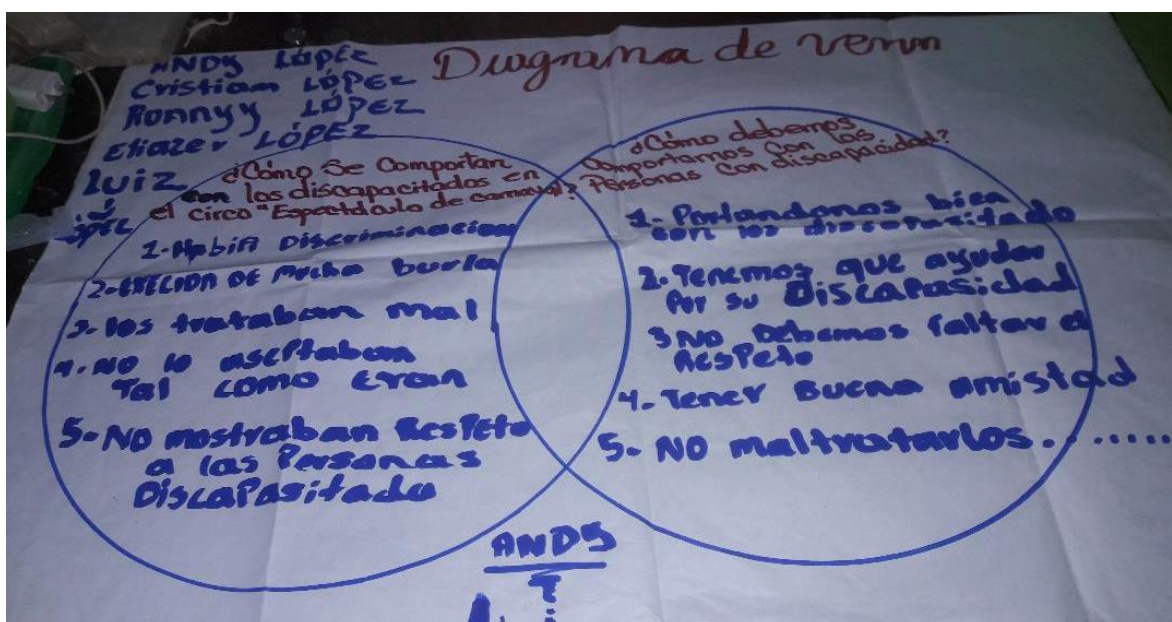 ANDY LópEz
Cristiam LópEz
Ronnyy LópEz
Eliazer LópEz
Luiz
Diagrama de venn
¿Cómo Se Comportan
con los discapacitados en
el circo "Espectáculo de carnaval?
1-Habia Discriminacion
2-EXECIDA DE Mucha burla
3-los trataban mal
4.-NO lo aseptaban
Tal como Eran
5-NO mostraban ResPeto
a las Personas
DiscaPasitada
¿Cómo debemos
Comportarnos Con las
Personas Con discapacidad?
1- Portandonos bien
con los discapasitado
2. Tenemos que ayudar
Por su DiscaPasidad
3 NO Debemos faltar el
ResPeto
4. Tener Buena amistad
5. NO maltratarlos........
ANDY